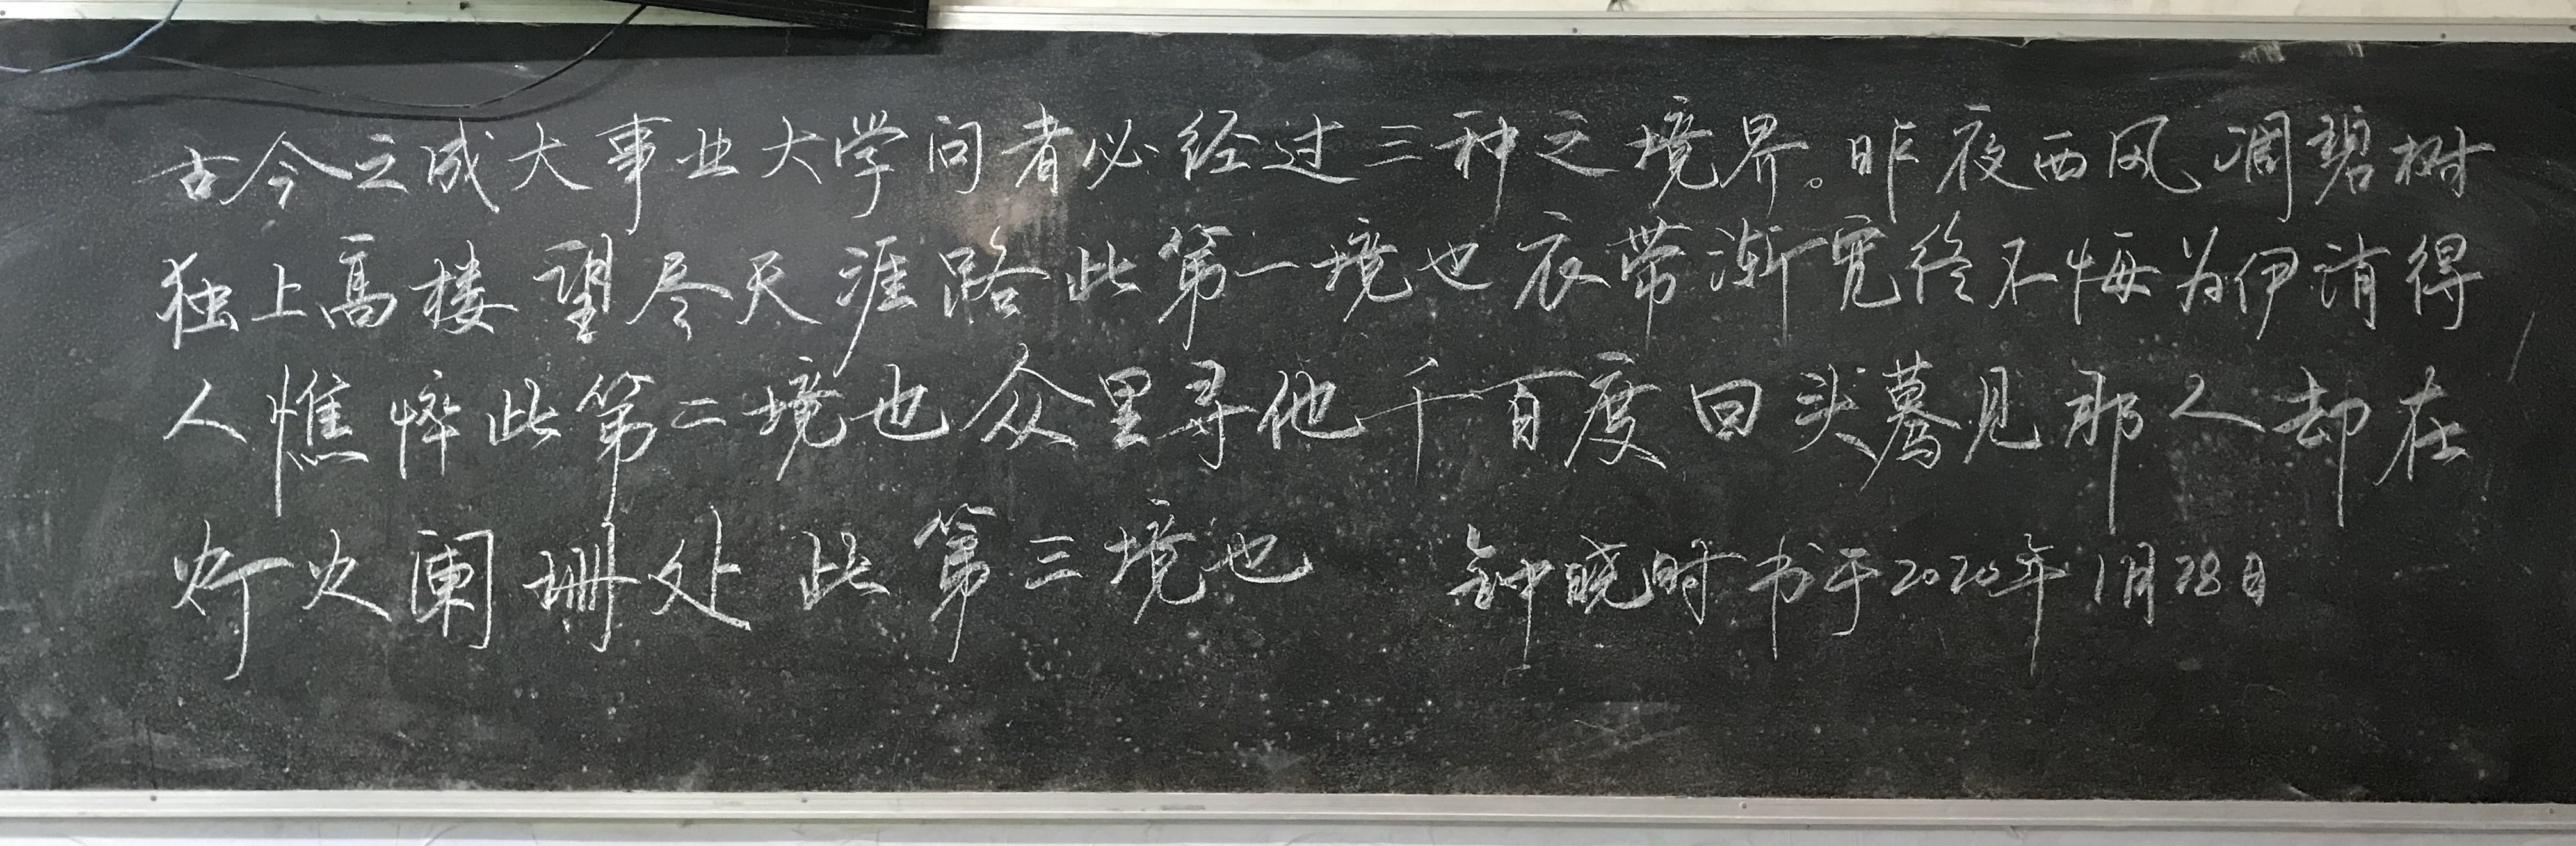 古今之成大事业大学问者必经过三种之境界。昨夜西风凋碧树
独上高楼望尽天涯路此第一境也衣带渐宽终不悔为伊消得
人憔悴此第二境也众里寻他千百度回头蓦见那人却在
灯火阑珊处此第三境也 钟晓时书于2020年1月28日